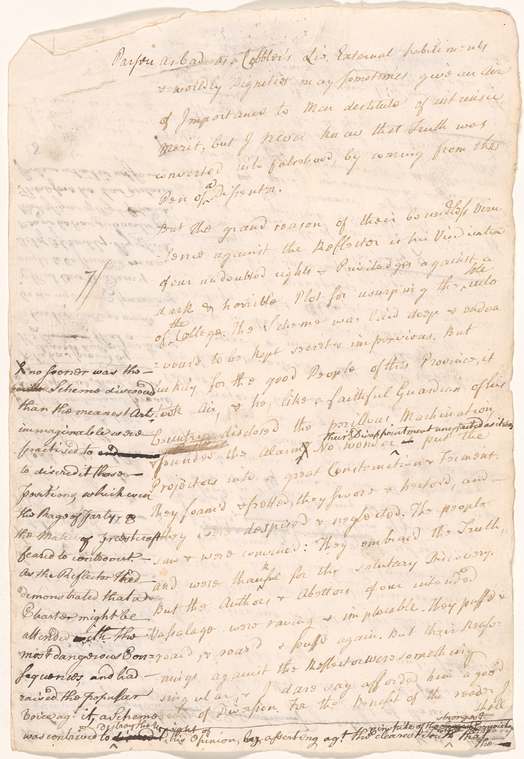 Parson as bad as a Cobbler's Lis. External habiliments
& worldly Dignities may sometimes give an air
of Importance to Men destitute of intrinsic
Merit, but I never knew that Truth was
converted into falsehood, by coming from the
Pen of a Dissenter.
But the grand reason of their boundless Viru
lence against the Reflector is his Vindication
of our undoubted rights & Priviledges against a
dark & horrible Plot for usurping the sole
of the College. The Scheme was laid deep &
vourd to be kept secret & impervious. But
luckily for the good People of this Province, it
took Air, & he, like a faithful Guardian of his
Country disclosed the perillous Machination
& sounded the alarm. X No wonder their Disappointment unexpected as it was put the
Projectors into a great Consternation & Ferment.
they foam'd & fretted, they swore & hectord, and
they were despised & neglected. The people
saw & were convinced: They embraced the Truth,
and were thankful for the salutary Discovery.
But the Authors & Abettors of our intended
Vassalage were raving & implacable. They puff'd &
roard & roar'd & puff'd again. But their Reaso-
nings against the Reflector were something
singular, & I dare say afforded him a good
of Diversion. For the Benefit of the reader
shall
7/
X no sooner was the
Scheme discovered
than the meanest Arts
immaginable were
practised to
to discredit those
positions which even
the Rage of Party &
the Malice of priestcraft
feared to controvert
As the Reflector had
demonstrated that a
Charter might be
attended with the
most dangerous Con-
sequences, and had
raised the popular
Voice agt. it, a Scheme
was contrived to this Opinion, by asserting agt the clearest
the